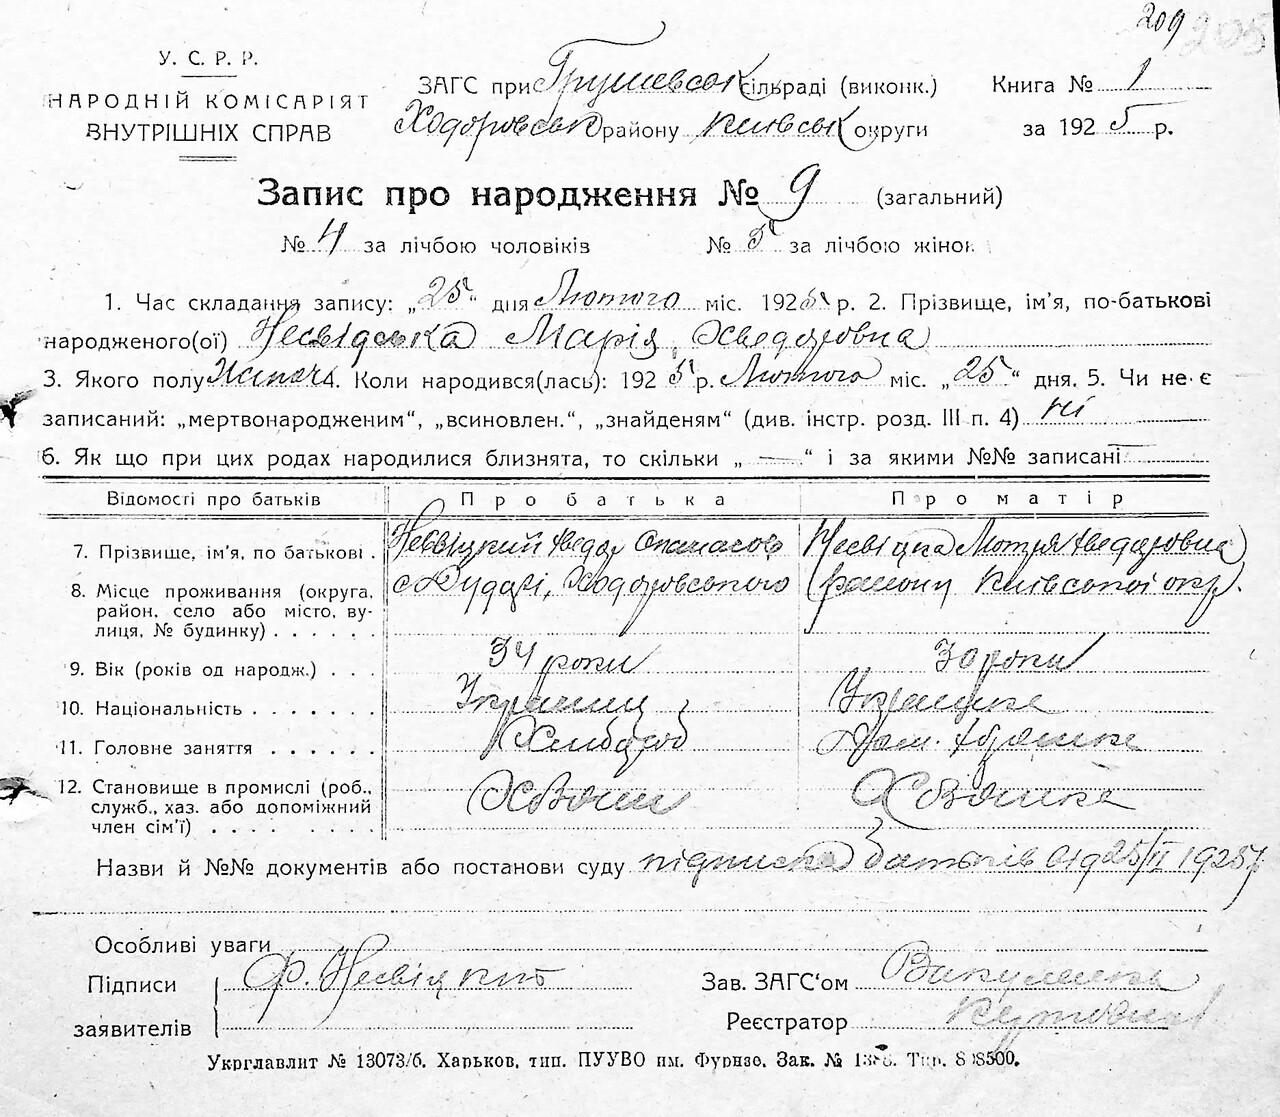 209 205
У. С. Р. Р.
НАРОДНІЙ КОМІСАРІЯТ
ВНУТРІШНІХ СПРАВ
ЗАГС при Грушевськ сільраді (виконк.)
Ходоровськ району Київськ округи
Книга № 1
за 1925 р.
Запис про народження № 9 (загальний)
№ 4 за лічбою чоловіків № 5 за лічбою жінок
1. Час складання запису: „25“ дня Лютого міс. 1925 р. 2. Прізвище, ім'я, по-батькові
народженого(ої) Несвідська Марія Хведоровна
3. Якого полу 4. Коли народився(лась): 1925 р. Лютого міс. „25“ дня. 5. Чи не є
записаний: „мертвонародженим“, „всиновлен.“, „знайденям“ (див. інстр. розд. III п. 4) ні
6. Як що при цих родах народилися близнята, то скільки „ — “ і за якими №№ записані —
Відомості про батьків Про батька Про матір
7. Прізвище, ім'я, по батькові . Несвіцкий Хведор Опанасов Несвіцка Мотря Хведоровна
8. Місце проживання (округа, с Дударі, Ходоровського району Київської окр.
район, село або місто, ву-
лиця, № будинку) . . . . . .
9. Вік (років од народж.) . . . 34 роки 30 роки
10. Національність . . . . . . . Українц Українка
11. Головне заняття . . . . . . Хлібороб
12. Становище в промислі (роб.,
служб., хаз. або допоміжний
член сім'ї) . . . . . . . .
Назви й №№ документів або постанови суду підписка батьків від 25/II 1925 р.
Особливі уваги
Підписи Ф. Несвіцкий
заявителів
Зав. ЗАГС‘ом
Реєстратор
Укрглавлит № 13073/б. Харьков, тип. ПУУВО им. Фрунзе. Зак. №